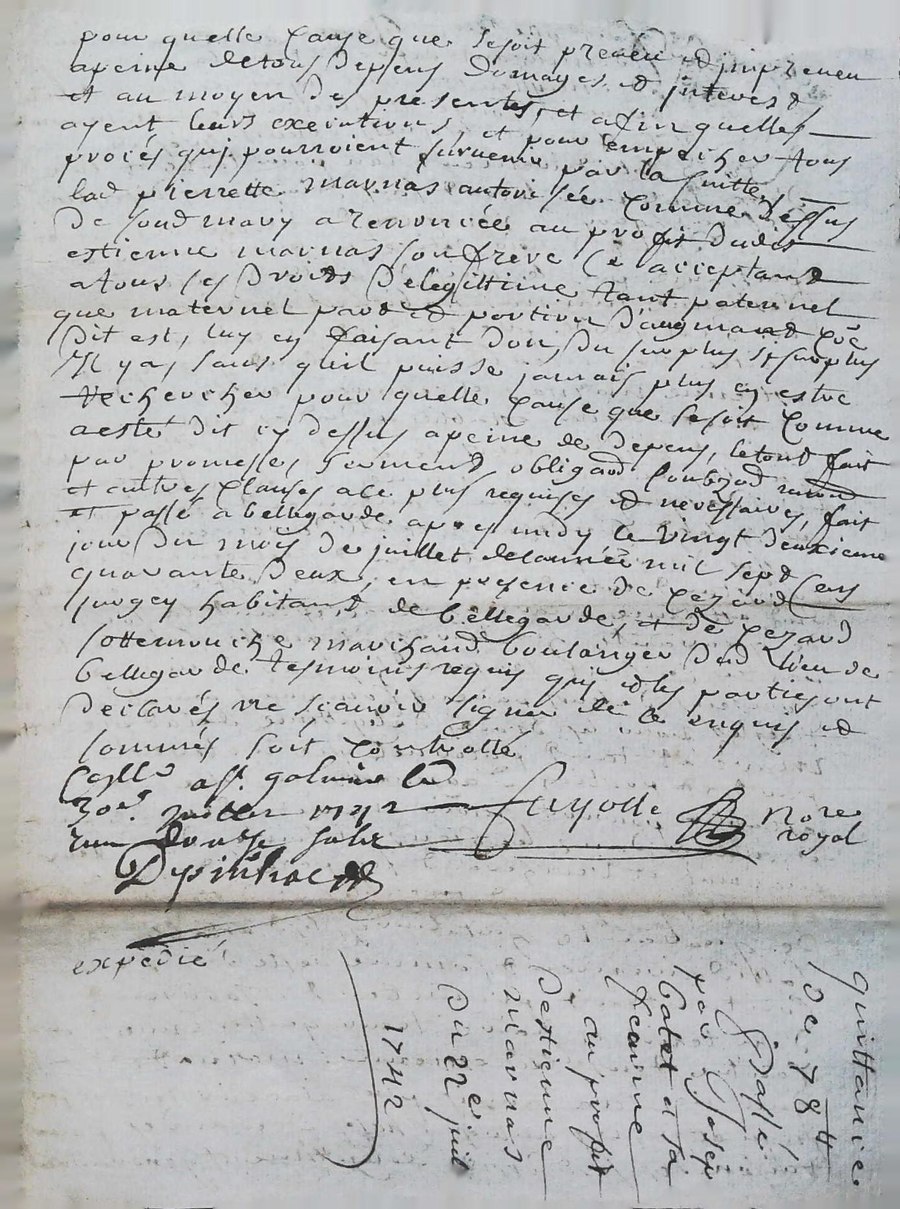 pour quelle cause que se soit preveu et impreveu
apeine detous depens domages et interest
et au moyen des presentes, et afin quelles
ayent leurs executions, et pour empecher tous
procés qui pourroient survenir par la suitte
lad pierrette marnas autorisée comme dessus
de sond mary a renoncée au profit dudit
estienne marnas son frere ce acceptant
atous ses droits de legittime tant paternel
que maternel part et portion d'augmand coe
dit est, luy en faisant don, du surplus sy surplus
Il y a, sans quil puisse jamais plus en estre
rechercher pour quelle cause que se soit comme
aesté dit cy dessus apeine de depens, le tout fait
par promesses serment, obligaon
et autres clauses ace plus requises et necessaires, fait
et passé a bellegarde apres midy le vingt deuxieme
jour du mois de juillet de lannée mil sept cens
quarante deux, en presence de
habitant de bellegarde, et de
marchand boulanger dud lieu de
bellegarde tesmoins requis qui et les parties ont
declarés ne scavoir signer de ce enquis et
sommés soit controllé
Conllé a st galmier le
30e juillet 1742 Fayolle Nore
royal
douze sols
expedié
quittance
de 78 ll
passé
par Joseph
et sa
feanne
au profit
destienne
marnas
Du 22e juil
1742